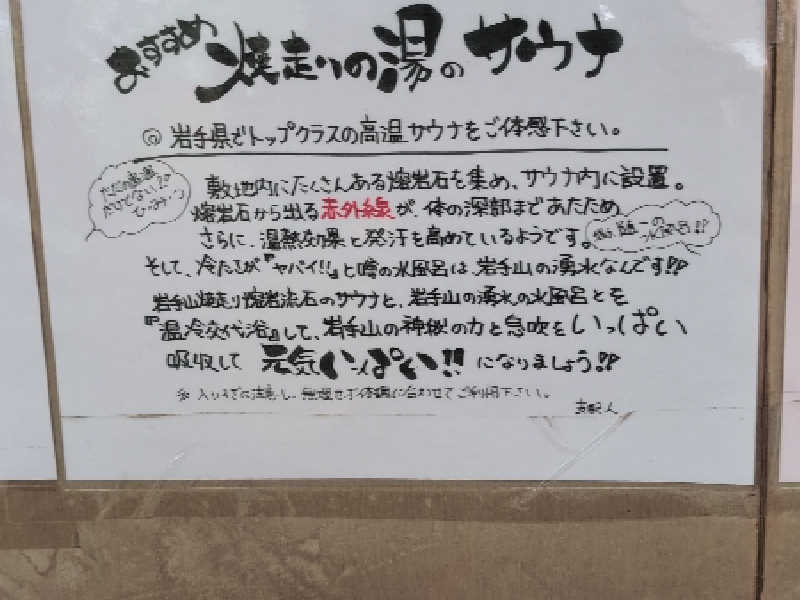 おすすめ 焼走りの湯のサウナ
◎ 岩手県でトップクラスの高温サウナをご体感下さい。
敷地内にたくさんある熔岩石を集め、サウナ内に設置。
熔岩石から出る赤外線が、体の深部まであたため
さらに、温熱効果と発汗を高めているようです。
そして、冷たさが『ヤバイ!!』と噂の水風呂は、岩手山の湧水なんです!!
岩手山焼走り熔岩流石のサウナと、岩手山の湧水の水風呂とを
『温冷交代浴』して、岩手山の神秘の力と息吹をいっぱい
吸収して 元気いっぱい!! になりましょう!!
※ 入りすぎに注意し、無理せず体調に合わせてご利用下さい。
支配人